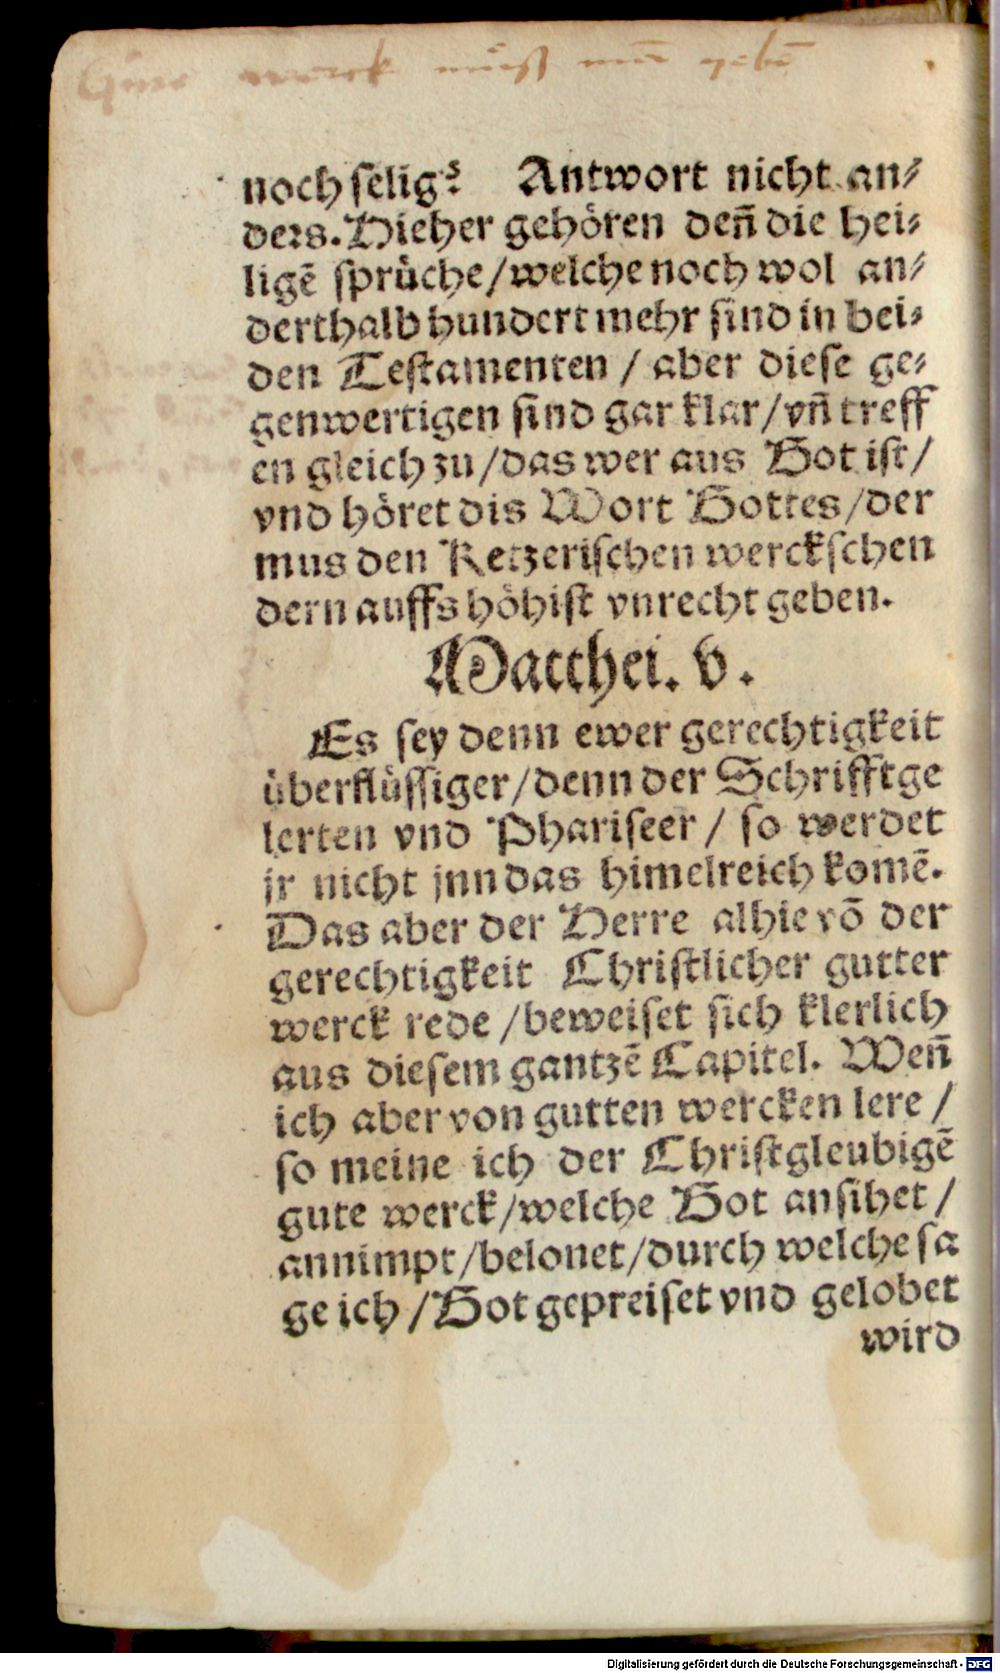 werck muͤſß man geben
noch ſelig? Antwort nicht an⸗
ders. Hieher gehoͤren deñ die hei⸗
ligẽ ſpruͤche/welche noch wol an⸗
derthalb hundert mehr ſind in bei⸗
den Teſtamenten / aber dieſe ge⸗
genwertigen ſind gar klar/vñ treff
en gleich zu/das wer aus Got iſt/
vnd hoͤret dis Wort Gottes/der
mus den Ketzeriſchen werckſchen
dern auffs hoͤhiſt vnrecht geben.
Matthei. v.
Es ſey denn ewer gerechtigkeit
uͤberfluͤſſiger/denn der Schrifftge
lerten vnd Phariſeer / ſo werdet
jr nicht jnn das himelreich komẽ.
Das aber der Herre alhie võ der
gerechtigkeit Chriſtlicher gutter
werck rede /beweiſet ſich klerlich
aus dieſem gantzẽ Capitel. Weñ
ich aber von gutten wercken lere /
ſo meine ich der Chriſtgleubigẽ
gute werck/welche Got anſihet /
annimpt/belonet/durch welche ſa
ge ich /Got gepreiſet vnd gelobet
wird
Digitalisierung gefördert durch die Deutsche Forschungsgemeinschaft - DFG